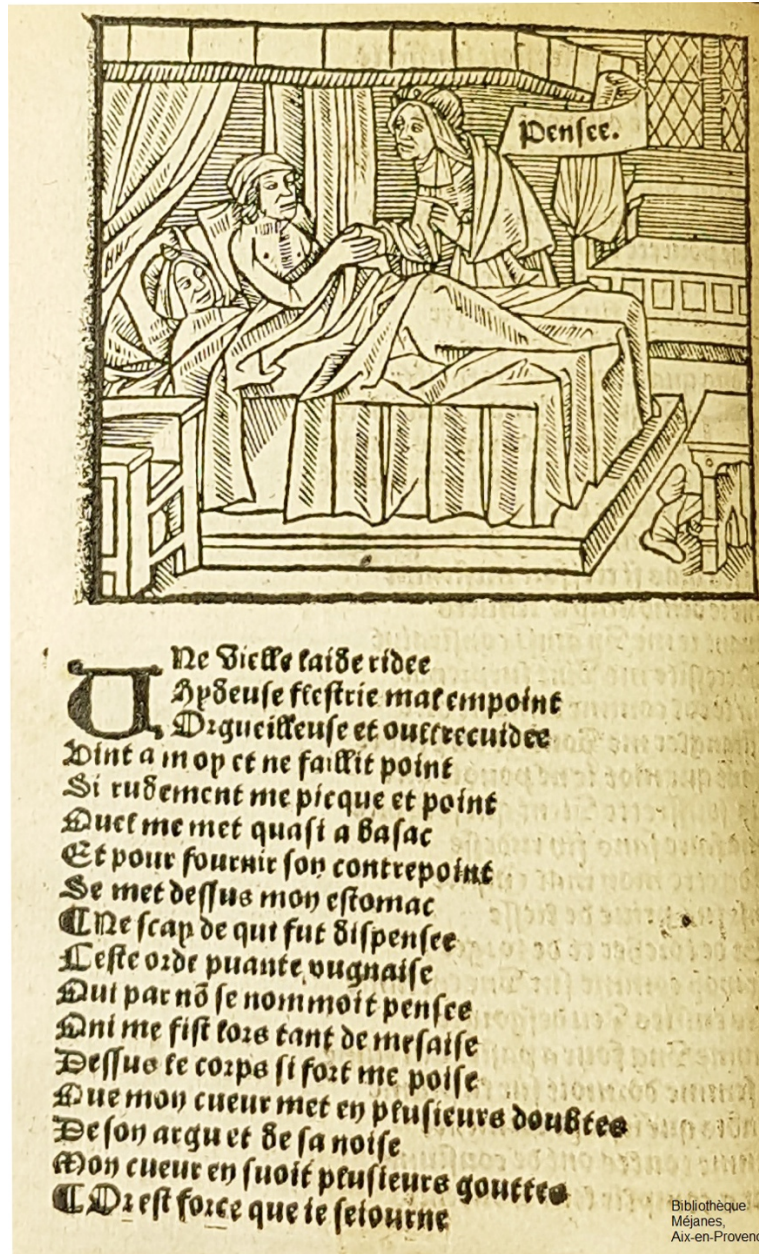 Pensee.
UNe vielle laide ridee
Hydeuse flestrie mal empoint
Orgueilleuse et oultrecuidee
Vint a moy et ne faillit point
Si rudement me picque et point
Quel me met quasi a basac
Et pour fournir son contrepoint
Se met dessus mon estomac
¶Ne scay de qui fut dispensee
Ceste orde puante pugnaise
Qui par nõ se nommoit pensee
Qni me fist lors tant de mesaise
Dessus le corps si fort me poise
Que mon cueur met en plusieurs doubtes
De son argu et de sa noise
Mon cueur en suoit plusieurs gouttes
¶Or est force que ie seiourne
Bibliothèque
Méjanes,